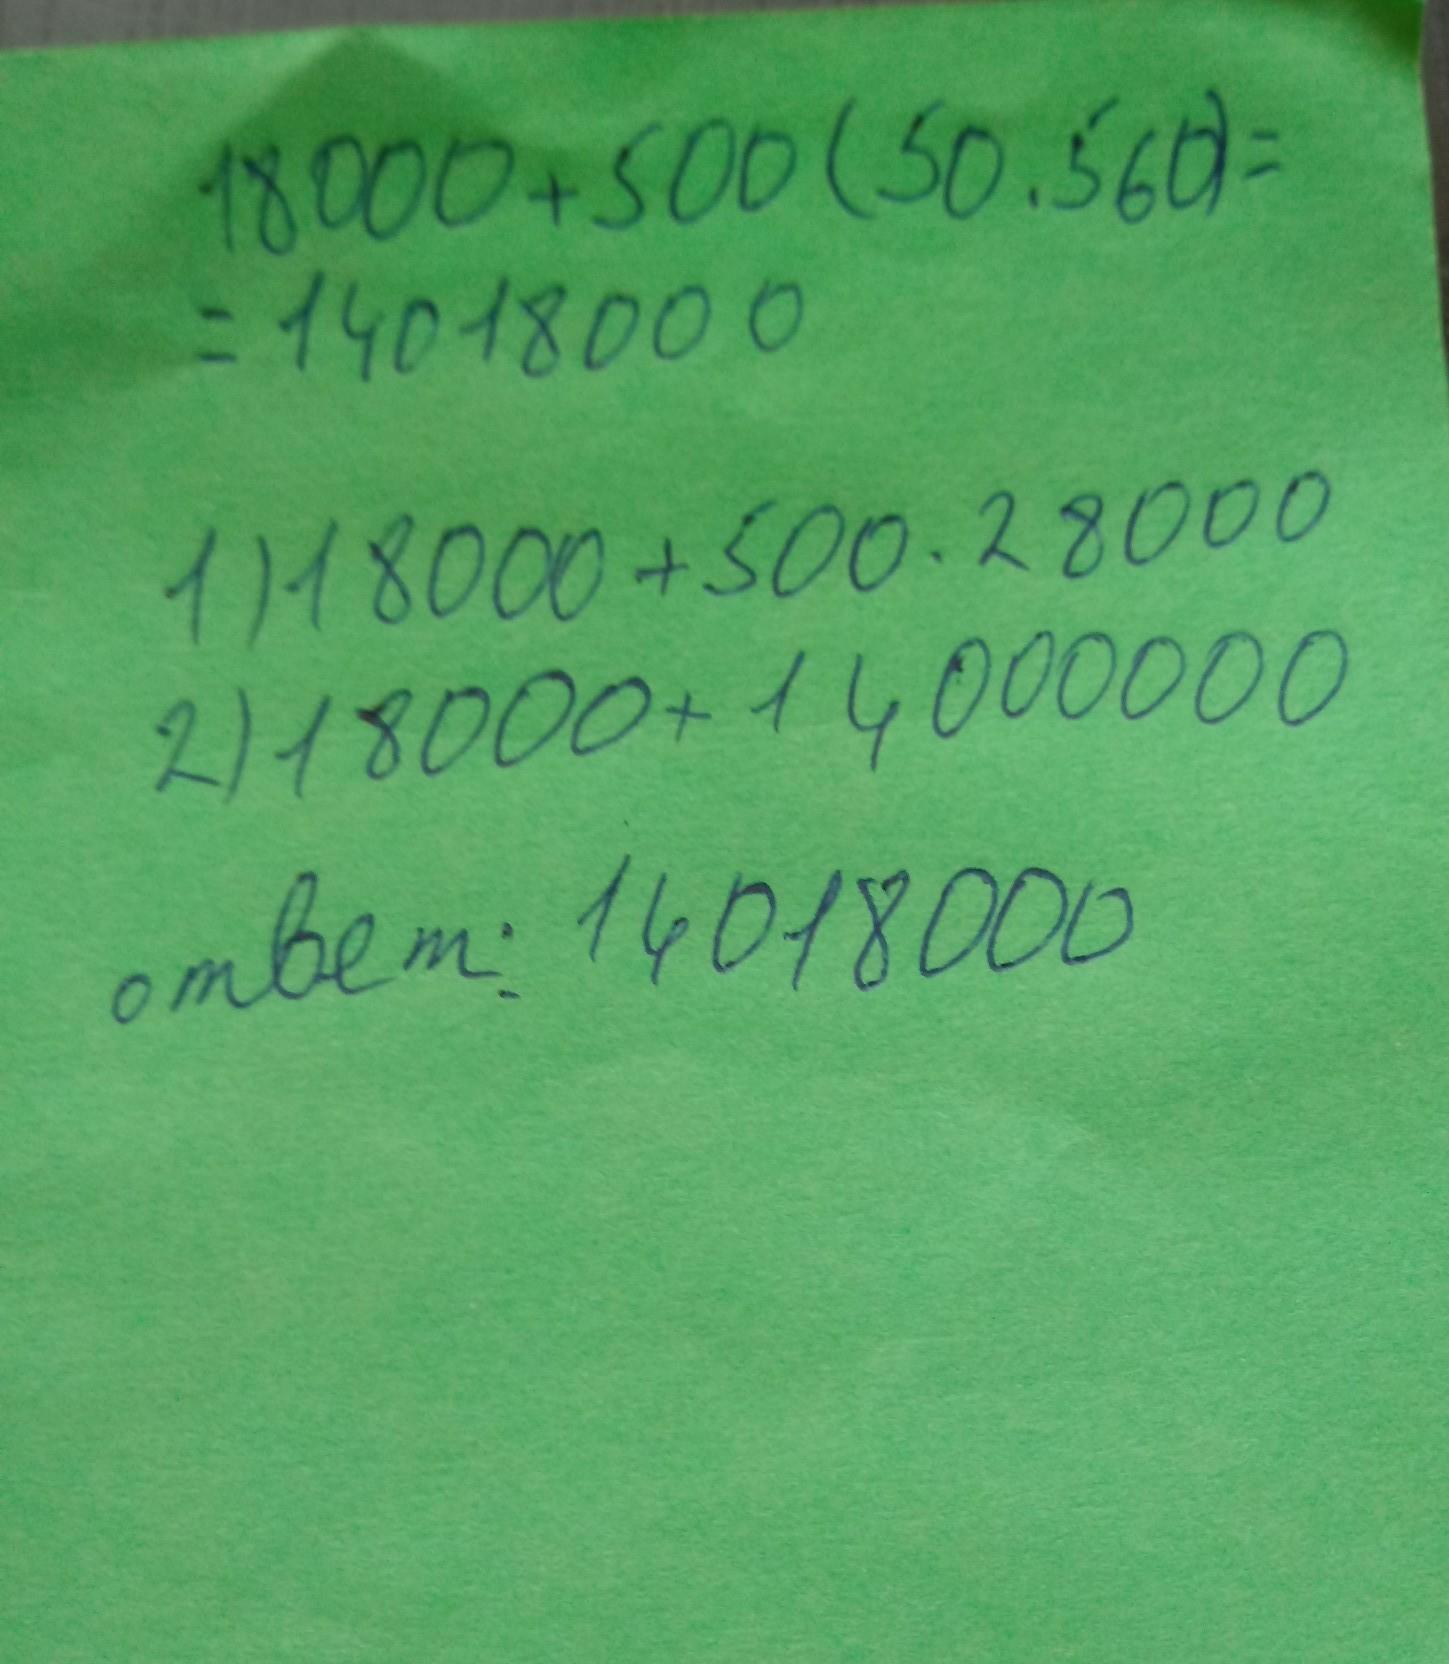 18000+500(50.560)=
=14018000
1)18000+500.28000
2)18000+14000000
ответ: 14018000